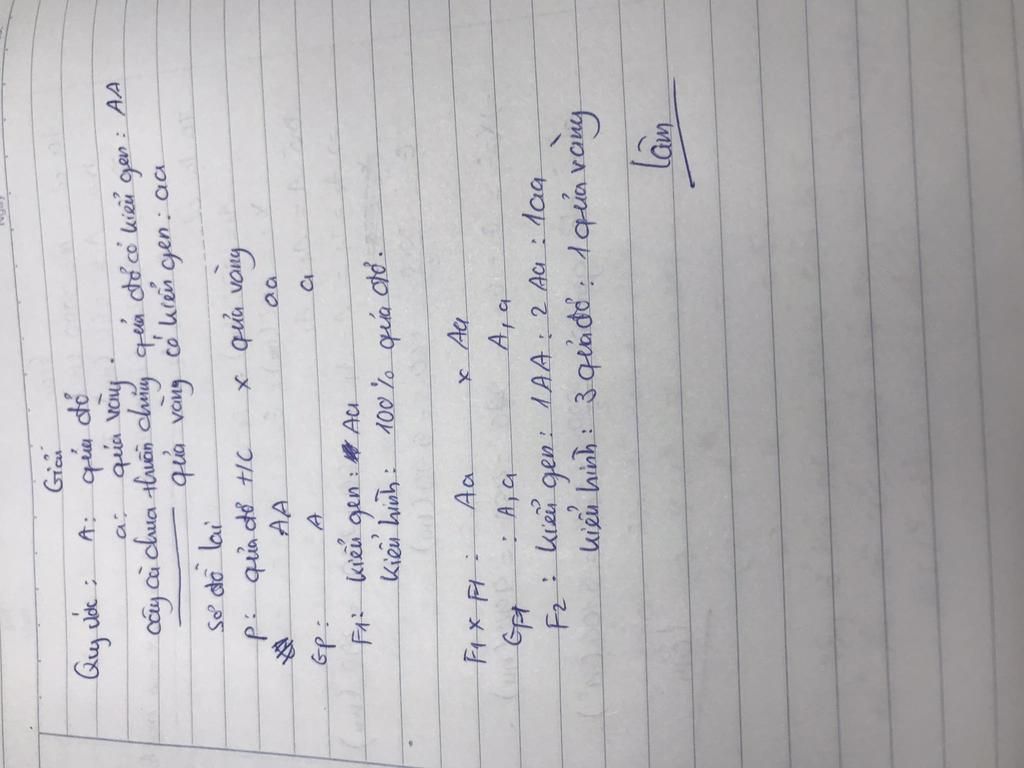 Giải
Quy ước: A: quả đỏ
a: quả vàng.
cây cà chua thuần chủng quả đỏ có kiểu gen: AA
quả vàng có kiểu gen: aa
sơ đồ lai
P: quả đỏ t/c x quả vàng
AA aa
GP: A a
F1: kiểu gen: Aa
kiểu hình: 100% quả đỏ.
F1 x F1: Aa x Aa
GF1 : A,a A,a
F2: kiểu gen: 1AA: 2 Aa: 1aa
kiểu hình: 3 quả đỏ: 1 quả vàng